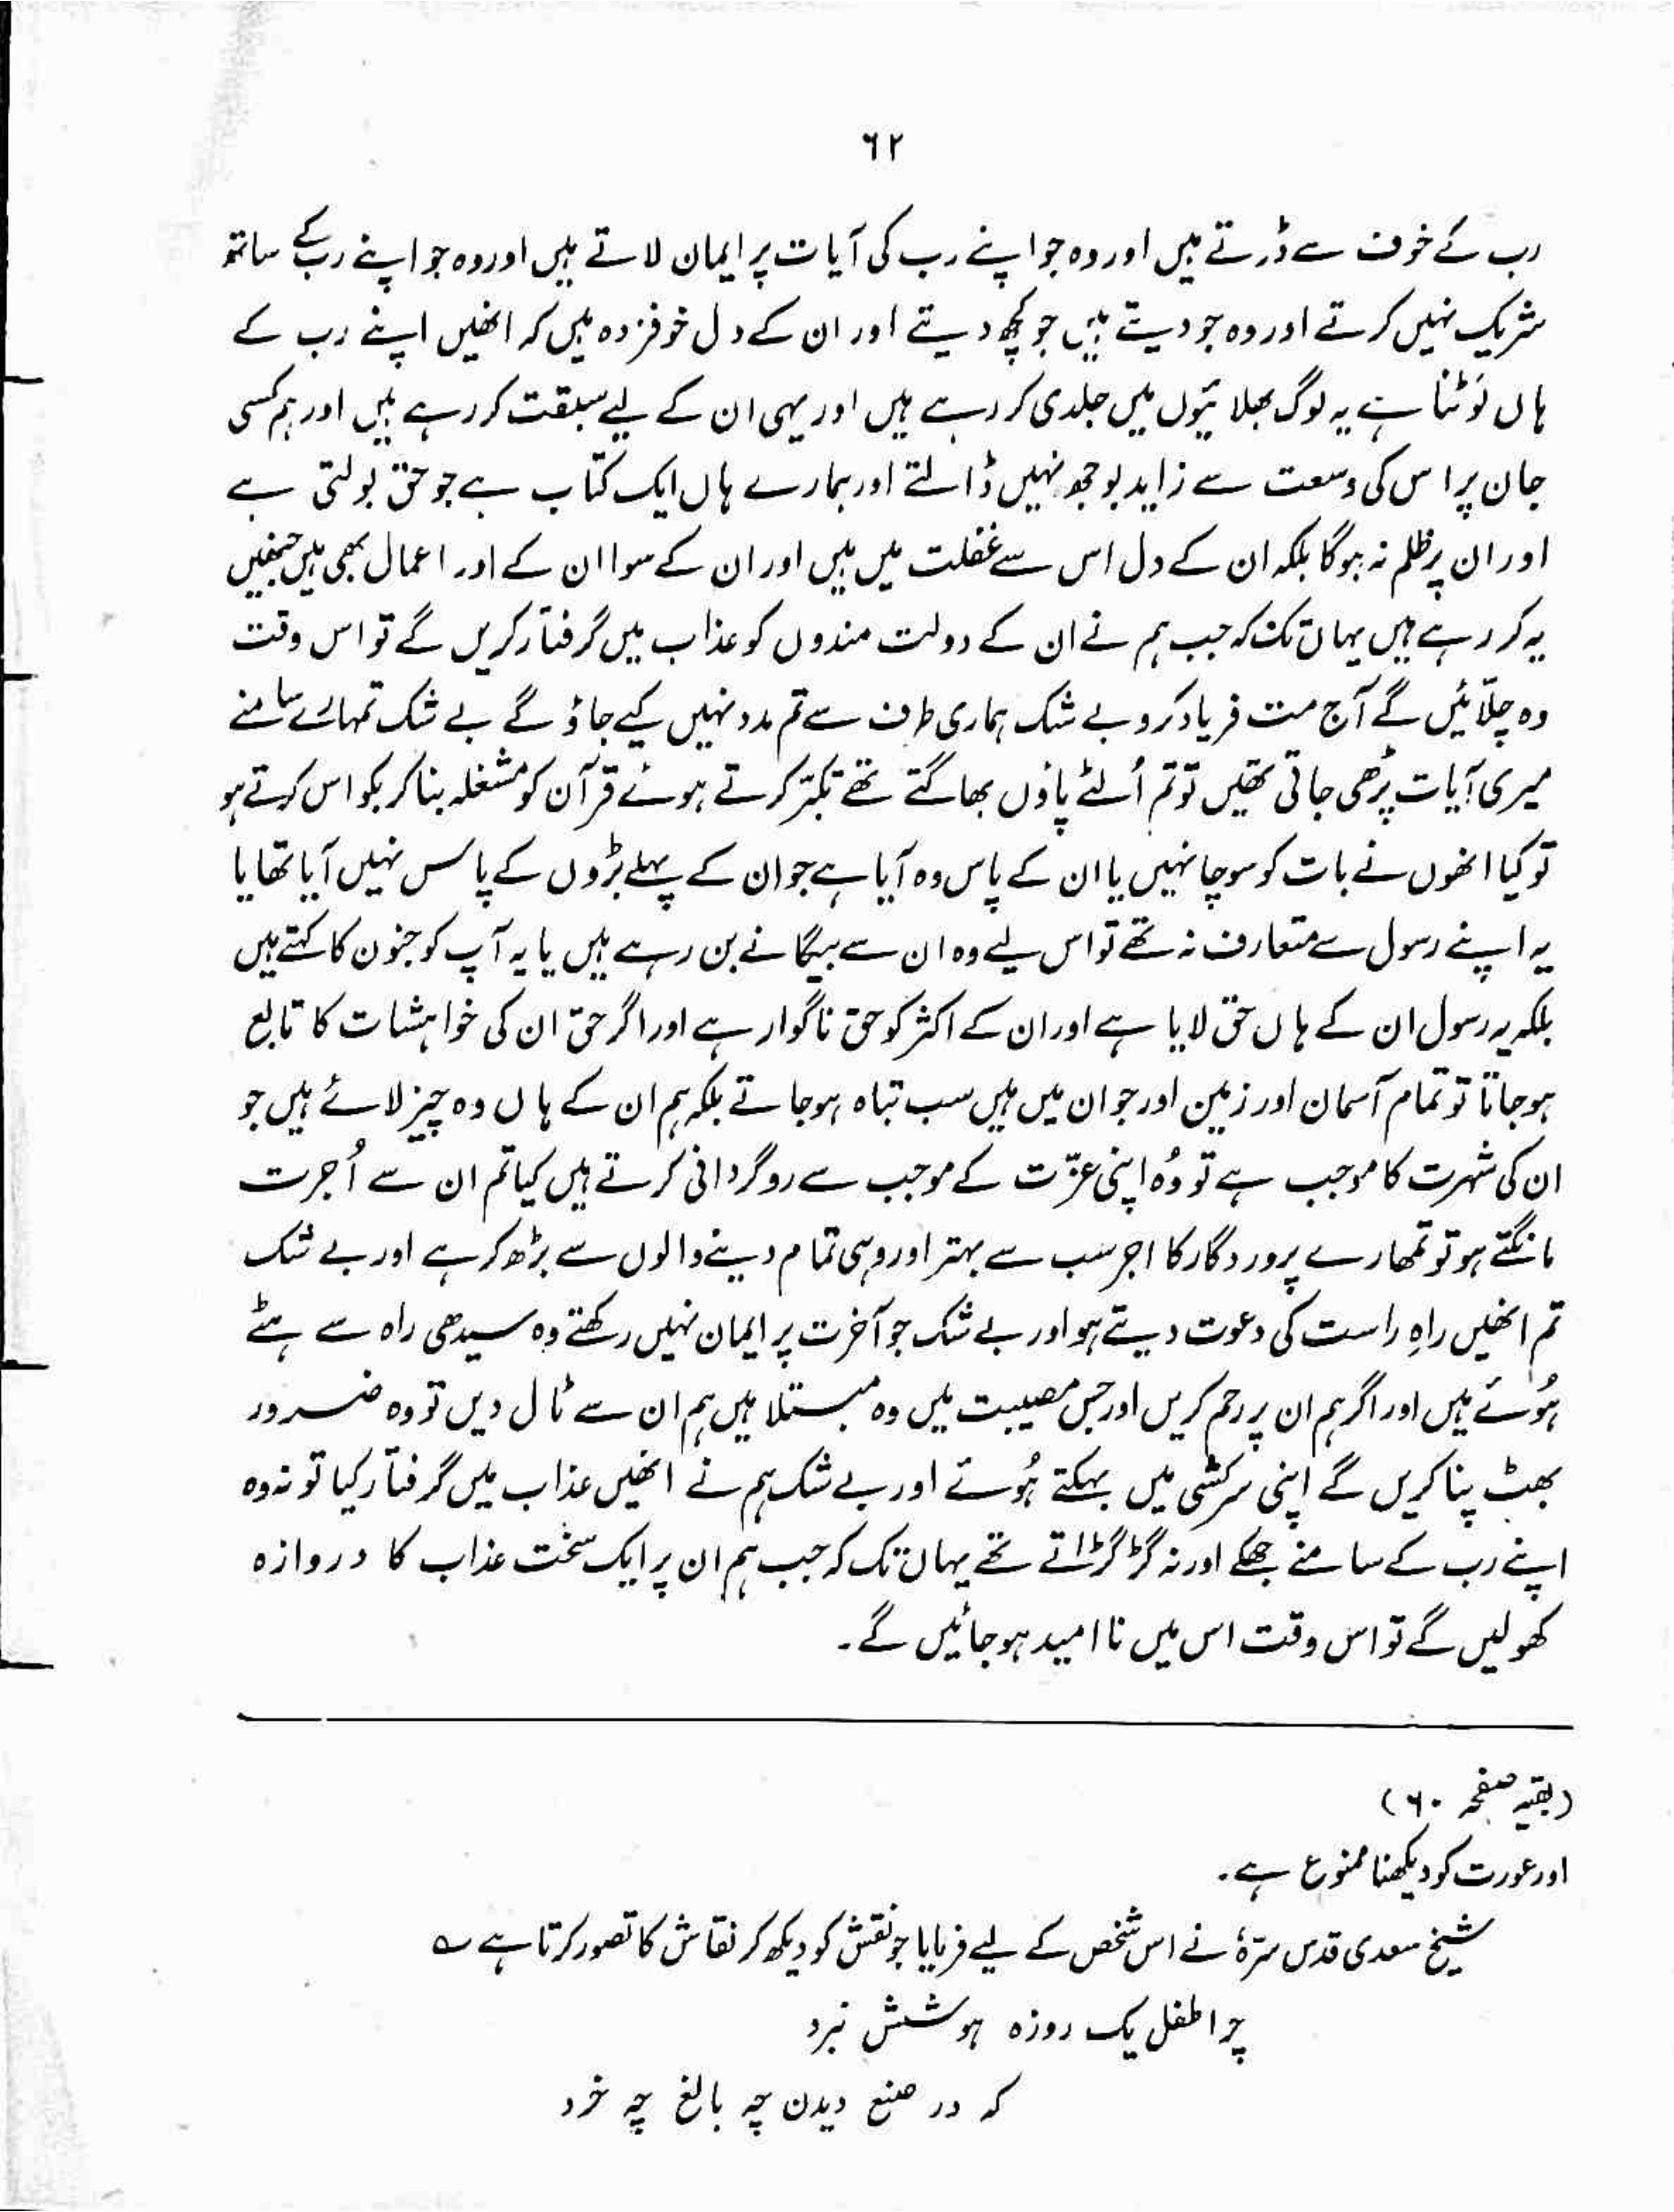 ۶۲
رب کے خوف سے ڈرتے ہیں اور وہ جو اپنے رب کی آیات پر ایمان لاتے ہیں اور وہ جو اپنے رب کے ساتھ
شریک نہیں کرتے اور وہ جو دیتے ہیں جو کچھ دیتے اور ان کے دل خوفزدہ ہیں کہ انھیں اپنے رب کے
ہاں لوٹنا ہے یہ لوگ بھلائیوں میں جلدی کر رہے ہیں اور یہی ان کے لیے سبقت کر رہے ہیں اور ہم کسی
جان پر اس کی وسعت سے زاید بوجھ نہیں ڈالتے اور ہمارے ہاں ایک کتاب ہے جو حق بولتی ہے
اور ان پر ظلم نہ ہوگا بلکہ ان کے دل اس سے غفلت میں ہیں اور ان کے سوا ان کے اور اعمال بھی ہیں جنھیں
یہ کر رہے ہیں یہاں تک کہ جب ہم نے ان کے دولت مندوں کو عذاب میں گرفتار کریں گے تو اس وقت
وہ چلّائیں گے آج مت فریاد کرو بے شک ہماری طرف سے تم مدد نہیں کیے جاؤ گے بے شک تمہارے سامنے
میری آیات پڑھی جاتی تھیں تو تم اُلٹے پاؤں بھاگتے تھے تکبّر کرتے ہوئے قرآن کو مشغلہ بنا کر بکواس کرتے ہو
تو کیا انھوں نے بات کو سوچا نہیں یا ان کے پاس وہ آیا ہے جو ان کے پہلے بڑوں کے پاس نہیں آیا تھا یا
یہ اپنے رسول سے متعارف نہ تھے تو اس لیے وہ ان سے بیگانے بن رہے ہیں یا یہ آپ کو جنون کا کہتے ہیں
بلکہ یہ رسول ان کے ہاں حق لایا ہے اور ان کے اکثر کو حق ناگوار ہے اور اگر حق ان کی خواہشات کا تابع
ہو جاتا تو تمام آسمان اور زمین اور جو ان میں ہیں سب تباہ ہو جاتے بلکہ ہم ان کے ہاں وہ چیز لائے ہیں جو
ان کی شہرت کا موجب ہے تو وُہ اپنی عزّت کے موجب سے روگردانی کرتے ہیں کیا تم ان سے اُجرت
مانگتے ہو تو تمھارے پروردگار کا اجر سب سے بہتر اور وہی تمام دینے والوں سے بڑھ کر ہے اور بے شک
تم انھیں راہِ راست کی دعوت دیتے ہو اور بے شک جو آخرت پر ایمان نہیں رکھتے وہ سیدھی راہ سے ہٹے
ہُوئے ہیں اور اگر ہم ان پر رحم کریں اور جس مصیبت میں وہ مبتلا ہیں ہم ان سے ٹال دیں تو وہ ضرور
بھٹ پنا کریں گے اپنی سرکشی میں بہکتے ہُوئے اور بے شک ہم نے انھیں عذاب میں گرفتار کیا تو نہ وہ
اپنے رب کے سامنے جھکے اور نہ گڑگڑاتے تھے یہاں تک کہ جب ہم ان پر ایک سخت عذاب کا دروازہ
کھولیں گے تو اس وقت اس میں نا امید ہو جائیں گے۔
(بقیہ صفحہ ۶۰)
اور عورت کو دیکھنا ممنوع ہے۔
شیخ سعدی قدس سرّہٗ نے اس شخص کے لیے فرمایا جو نقش کو دیکھ کر نقاش کا تصور کرتا ہے ؎
چرا طفل یک روزہ ہوشش نبرد
کہ در صنع دیدن چہ بالغ چہ خرد